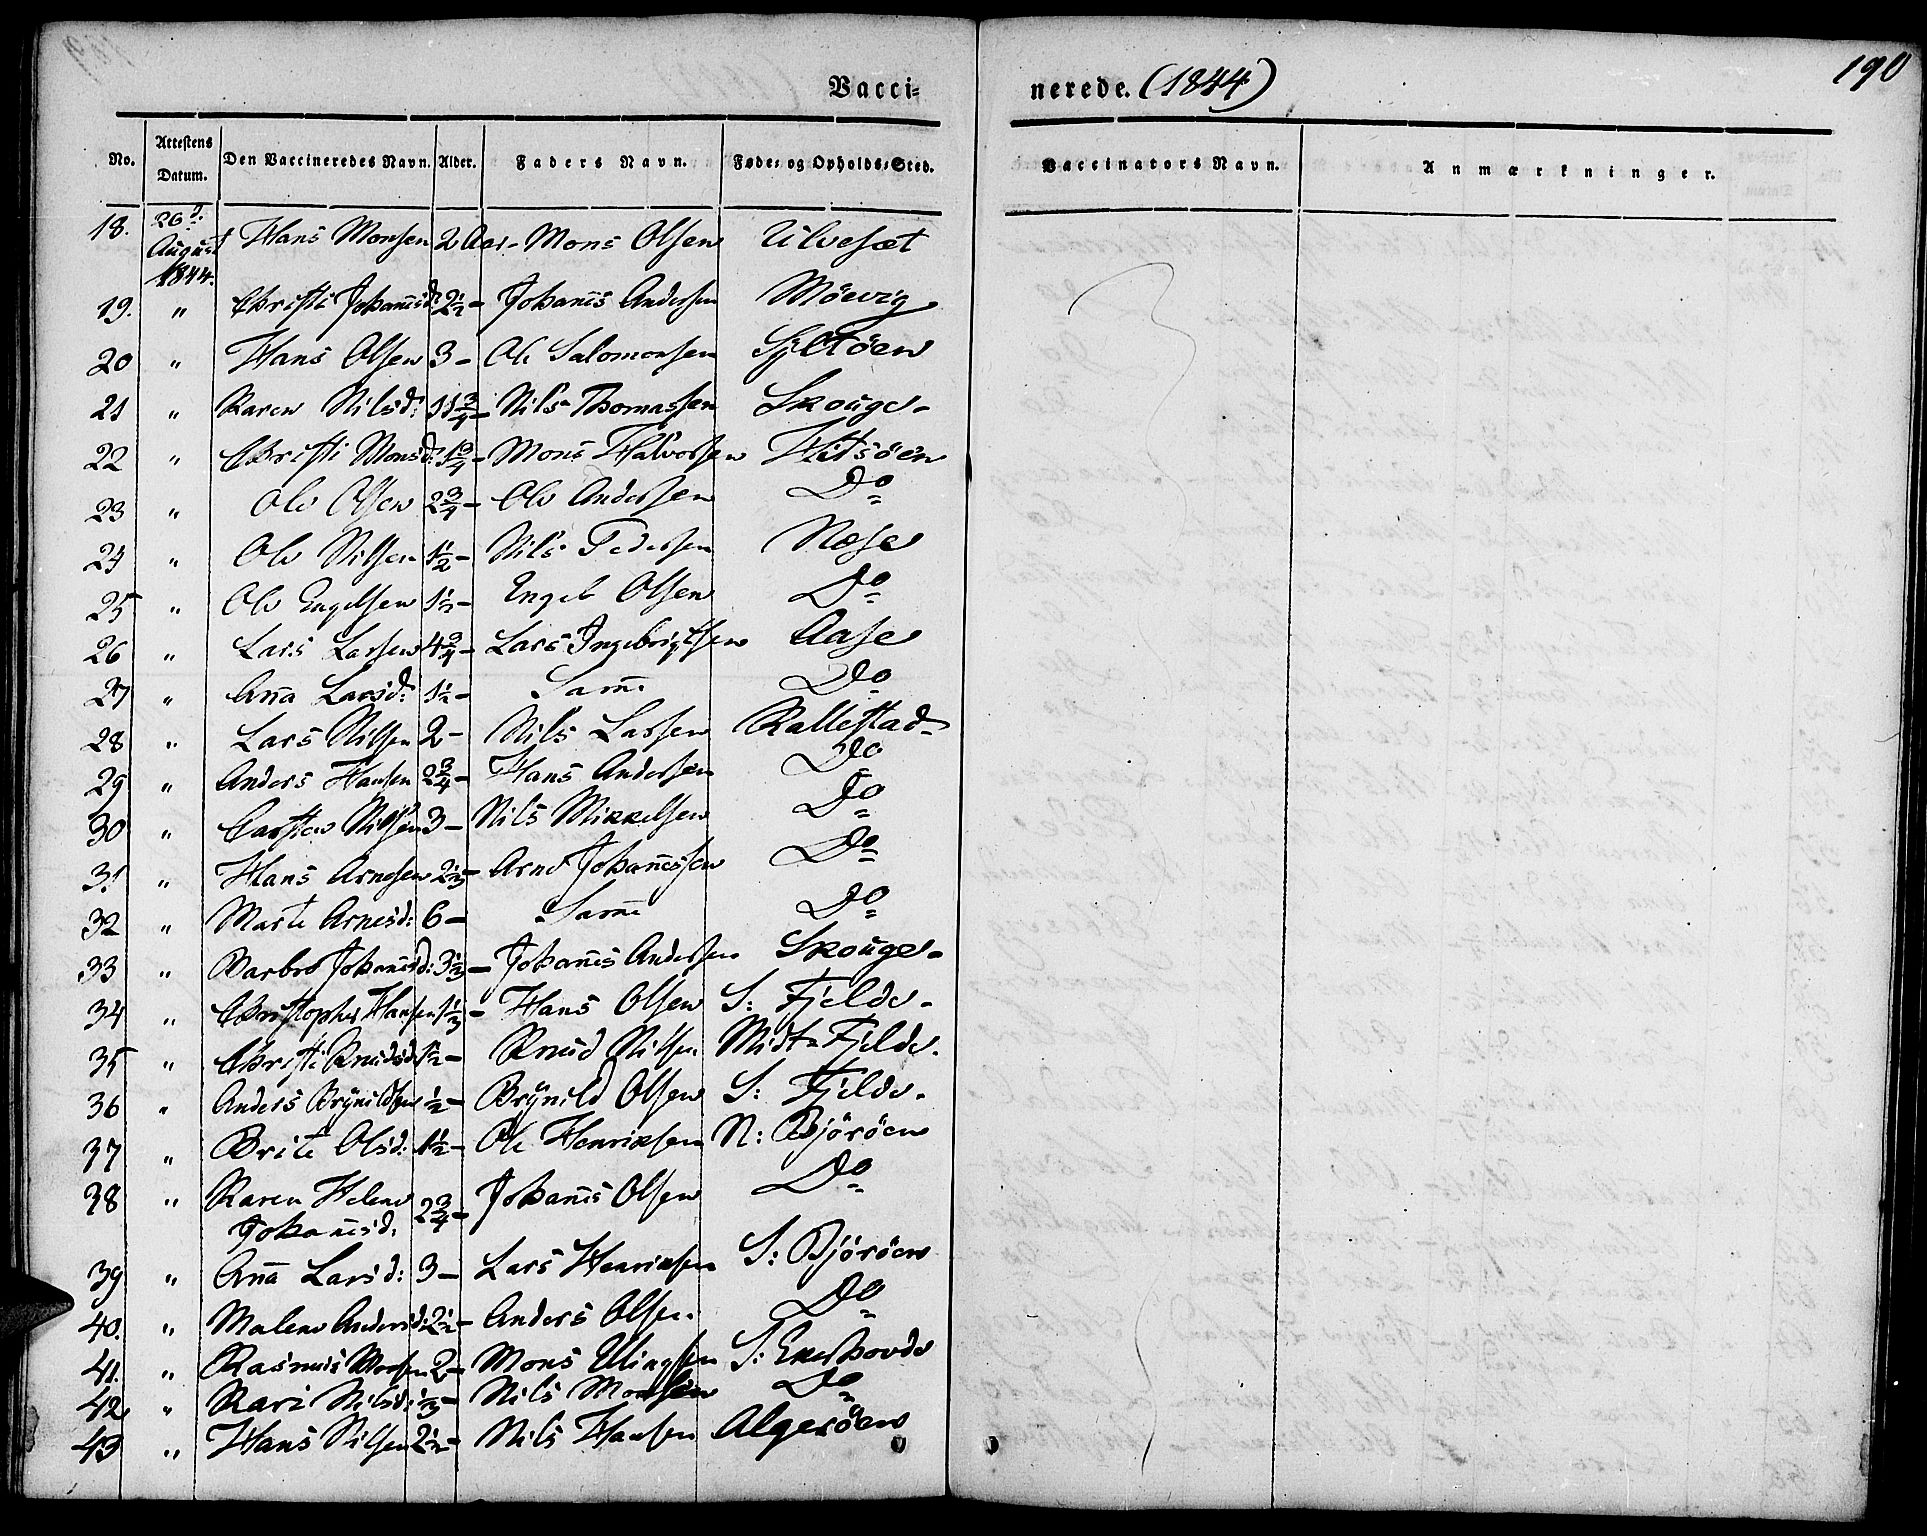 190
Vacci-nerede. (1844)
No. Attestens Datum. Den Vaccineredes Navn. Alder. Faders Navn. Føde- og Opholds-Sted. Vaccinators Navn. Anmærkninger.
18. 26d: August 1844. Hans Monsen 2 Aar- Mons Olsen Ulvesæt
19. " Christi Johañisd: 2½- Johañis Andersen Möevig
20 " Hans Olsen 3- Ole Salomonsen Sjeltöen
21 " Karen Nilsd: 11¾- Nils Thomassen Skouge-
22 " Christi Monsd: 1¾- Mons Halvorsen Hitsöen
23 " Ole Olsen 2¾- Ole Andersen Do
24 " Ole Nilsen 1½- Nils Pedersen Nese
25 " Ole Engelsen 1½- Engel Olsen Do
26 " Lars Larsen 4¾- Lars Ingebrigtsen Aase
27 " Aña Larsd: 1½- Sam̃e Do
28 " Lars Nilsen 2- Nils Larsen Kallestad-
29 " Anders Hansen 2¾- Hans Andersen Do
30 " Carsten Nilsen 3- Nils Mikkelsen Do
31 " Hans Arnesen 2⅓- Arne Johañessen Do
32 " Marte Arnesd: 6- Sam̃e Do
33 " Barbro Johañisd: 3⅓- Johañis Andersen Skouge-
34 " Christopher Hansen 1⅓- Hans Olsen S: Fjelde-
35 " Christi Knudsd: 1½- Knud Nilsen Midt-Fjelde.
36 " Anders Brÿnildsen ½- Brÿnild Olsen S: Fjelde.
37 " Brite Olsd: 1½- Ole Henriksen N: Björöen
38 " Karen Helene Johañisd. 2¾- Johañis Olsen Do
39 " Aña Larsd: 3- Lars Henriksen S: Björöen
40. " Malene Andersd: 2½- Anders Olsen. Do
41. " Rasmus Monsen 2- Mons Ellingsen S: Ekerhovde
42 " Kari Nilsd: ⅓- Nils Monsen Do
43 " Hans Nilsen 2½- Nils Hansen Algeröen